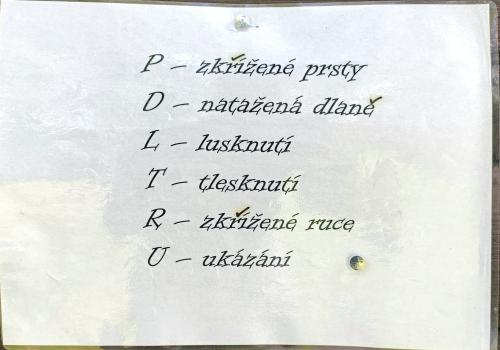 P – zkřížené prsty
D – natažená dlaně
L – lusknutí
T – tlesknutí
R – zkřížené ruce
U – ukázání